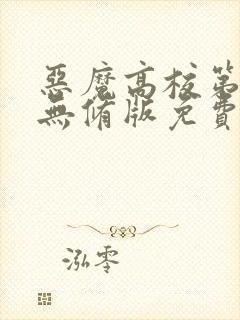 惡魔高校第
無脩版免費
泓零